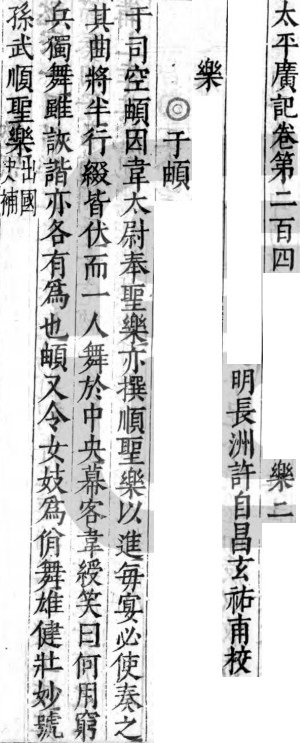 太平廣記卷第二百四　樂二
明長洲許自昌玄祐甫校
樂
◎于頔
于司空頔因韋太尉奉聖樂亦撰順聖樂以進每宴必使奏之
其曲將半行綴皆伏而一人舞於中央幕客韋綬笑曰何用窮
兵獨舞雖詼諧亦各有為也頔又令女妓為佾舞雄健壯妙號
孫武順聖樂出國史補